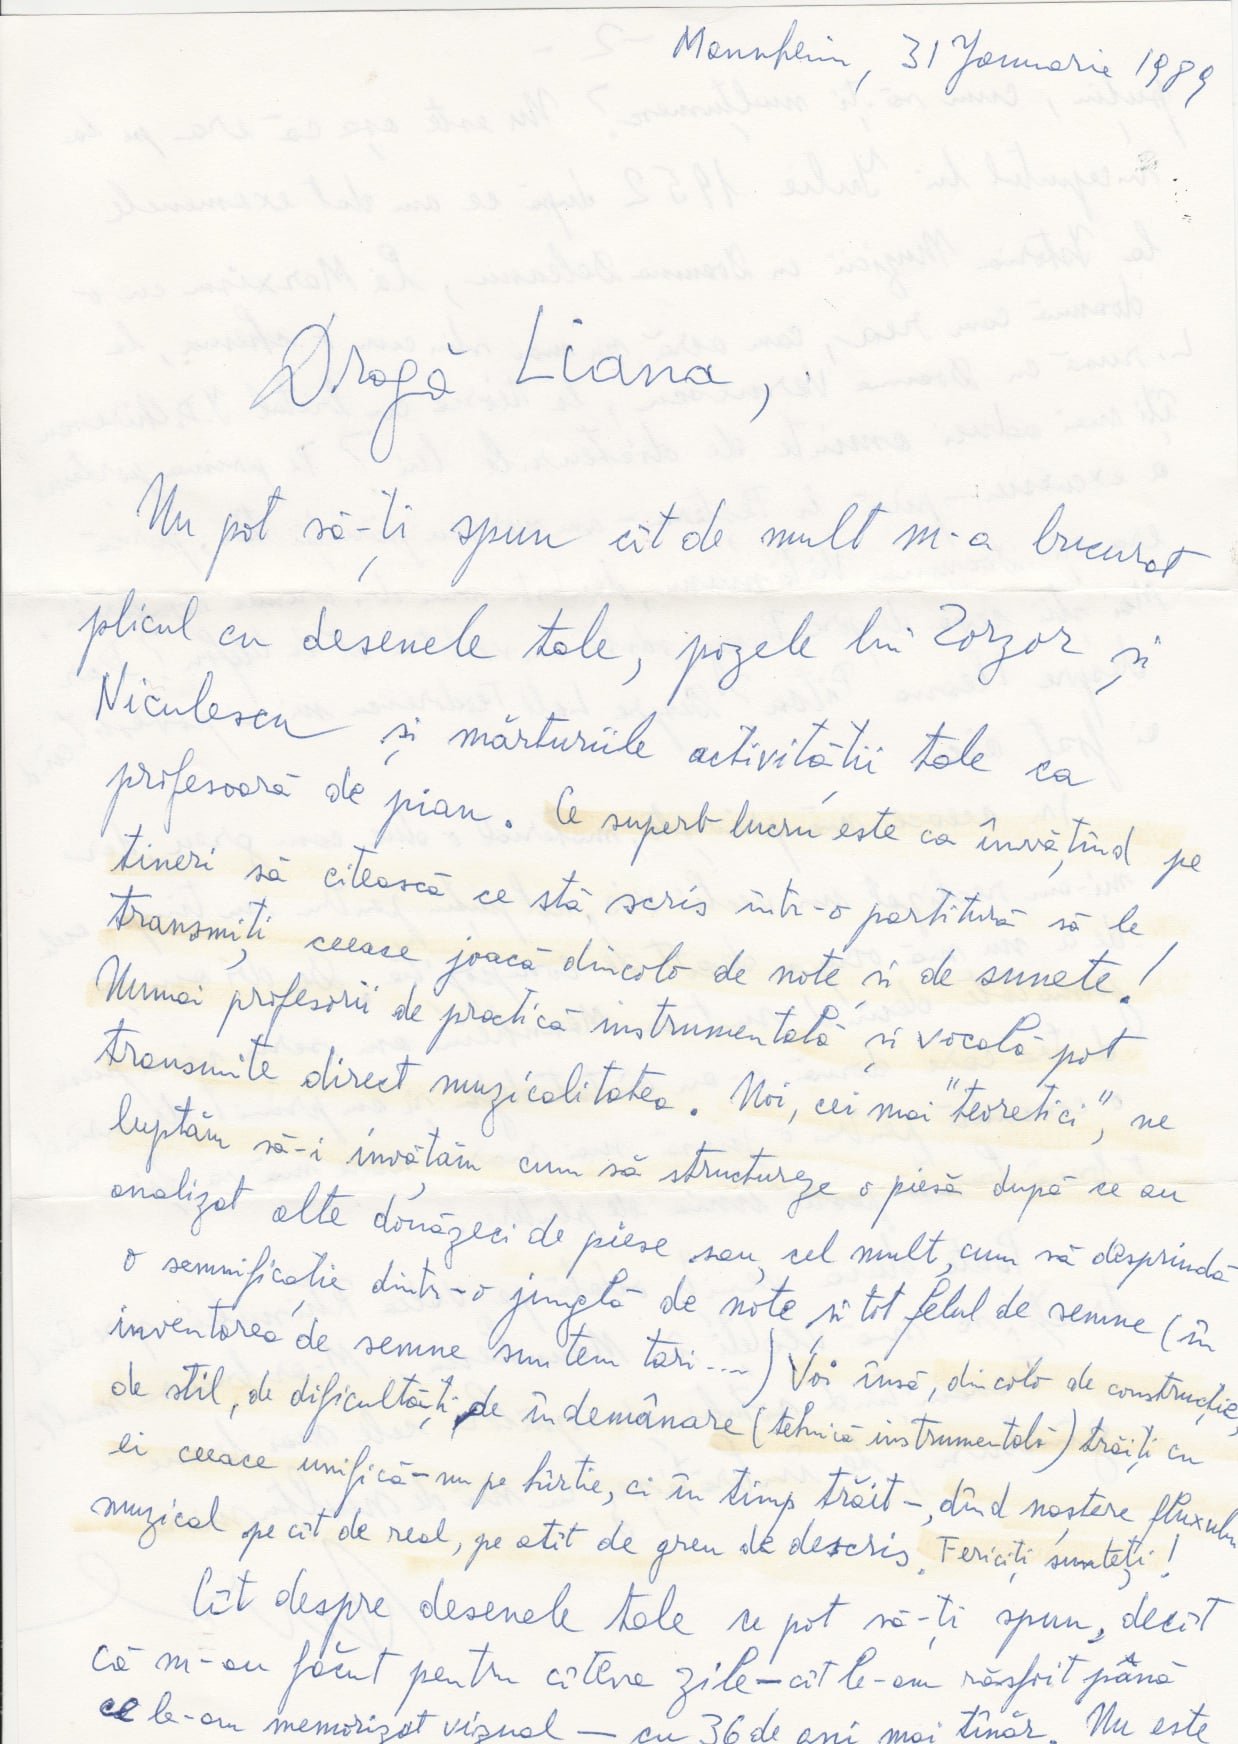 Mannheim, 31 Januarie 1989
Dragă Liana,
Nu pot să-ți spun cît de mult m-a bucurat
plicul cu desenele tale, pozele lui Zorzor și
Niculescu și mărturiile activității tale ca
profesoară de pian. Ce superb lucru este ca învățînd pe
tineri să citească ce stă scris într-o partitură să le
transmiți ceeace joacă dincolo de note și de sunete!
Numai profesorii de practică instrumentală și vocală pot
transmite direct muzicalitatea. Noi, cei mai "teoretici", ne
luptăm să-i învățăm cum să structureze o piesă după ce au
analizat alte douăzeci de piese sau, cel mult, cum să desprindă
o semnificație dintr-o junglă de note și tot felul de semne (în
inventarea de semne suntem tari....) Voi însă, dincolo de construcție,
de stil, de dificultăți de îndemânare (tehnică instrumentală) trăiți cu
ei ceeace unifică - nu pe hîrtie, ci în timp trăit -, dînd naștere fluxului
muzical pe cît de real, pe atît de greu de descris. Fericiți sunteți!
Cît despre desenele tale ce pot să-ți spun, decît
că m-au făcut pentru cîteva zile - cît le-am răsfoit până
ce le-am memorizat vizual - cu 36 de ani mai tînăr. Nu este